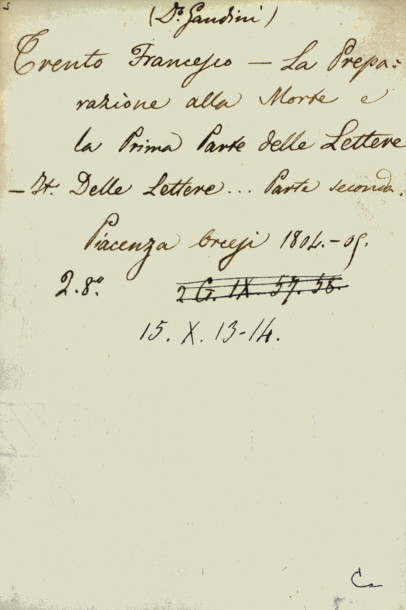 (Dr. Gandini)
Trento Francesco — La Prepa:
razione alla Morte e
la Prima Parte delle Lettere
— It. Delle Lettere... Parte seconda.
Piacenza Orcesi 1804.-05.
2.8.°
2 G. IX. 57. 58.
15. X. 13-14.